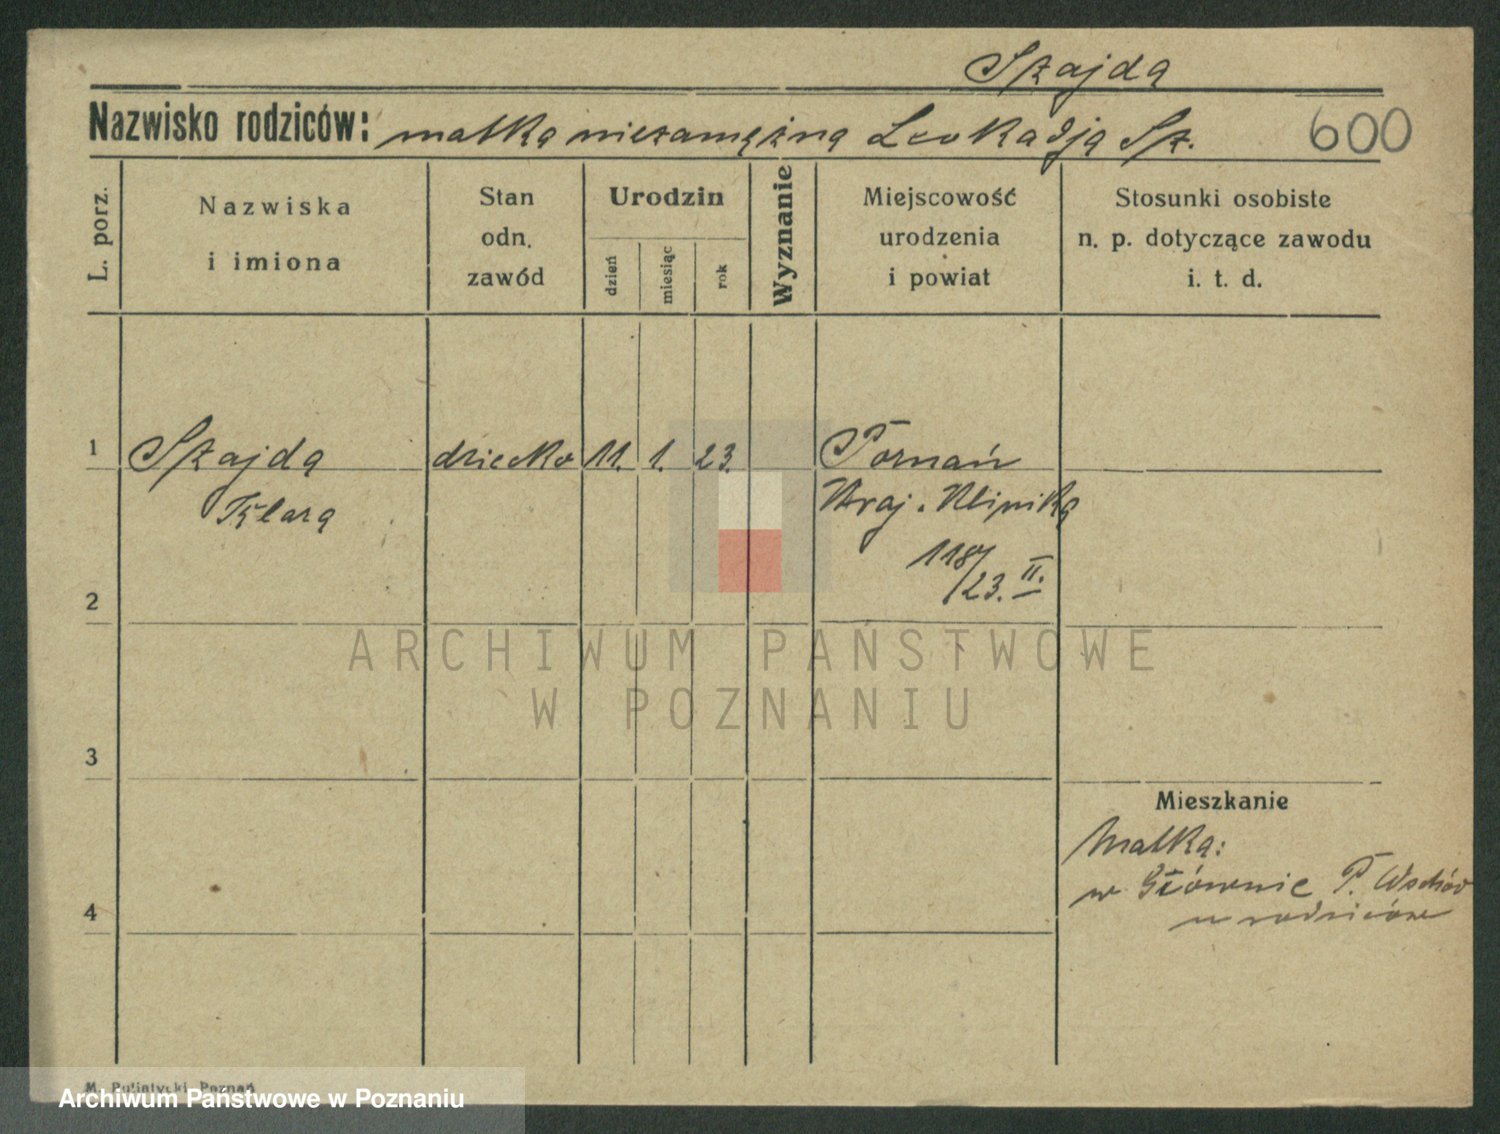 Szajda
Nazwisko rodziców: matka niezamężna Leokadja Sz. 600
L. porz.
Nazwiska
i imiona
Stan
odn.
zawód
Urodzin
dzień
miesiąc
rok
Wyznanie
Miejscowość
urodzenia
i powiat
Stosunki osobiste
n. p. dotyczące zawodu
i. t. d.
1 Szajda dziecko 11. 1. 23. Poznań
Klara Kraj. Klinika
118/23. II.
2
ARCHIWUM PAŃSTWOWE
W POZNANIU
3
Mieszkanie
Matka:
w Głównie P. Wschód
4
u rodziców
M. Putiatycki Poznań
Archiwum Państwowe w Poznaniu